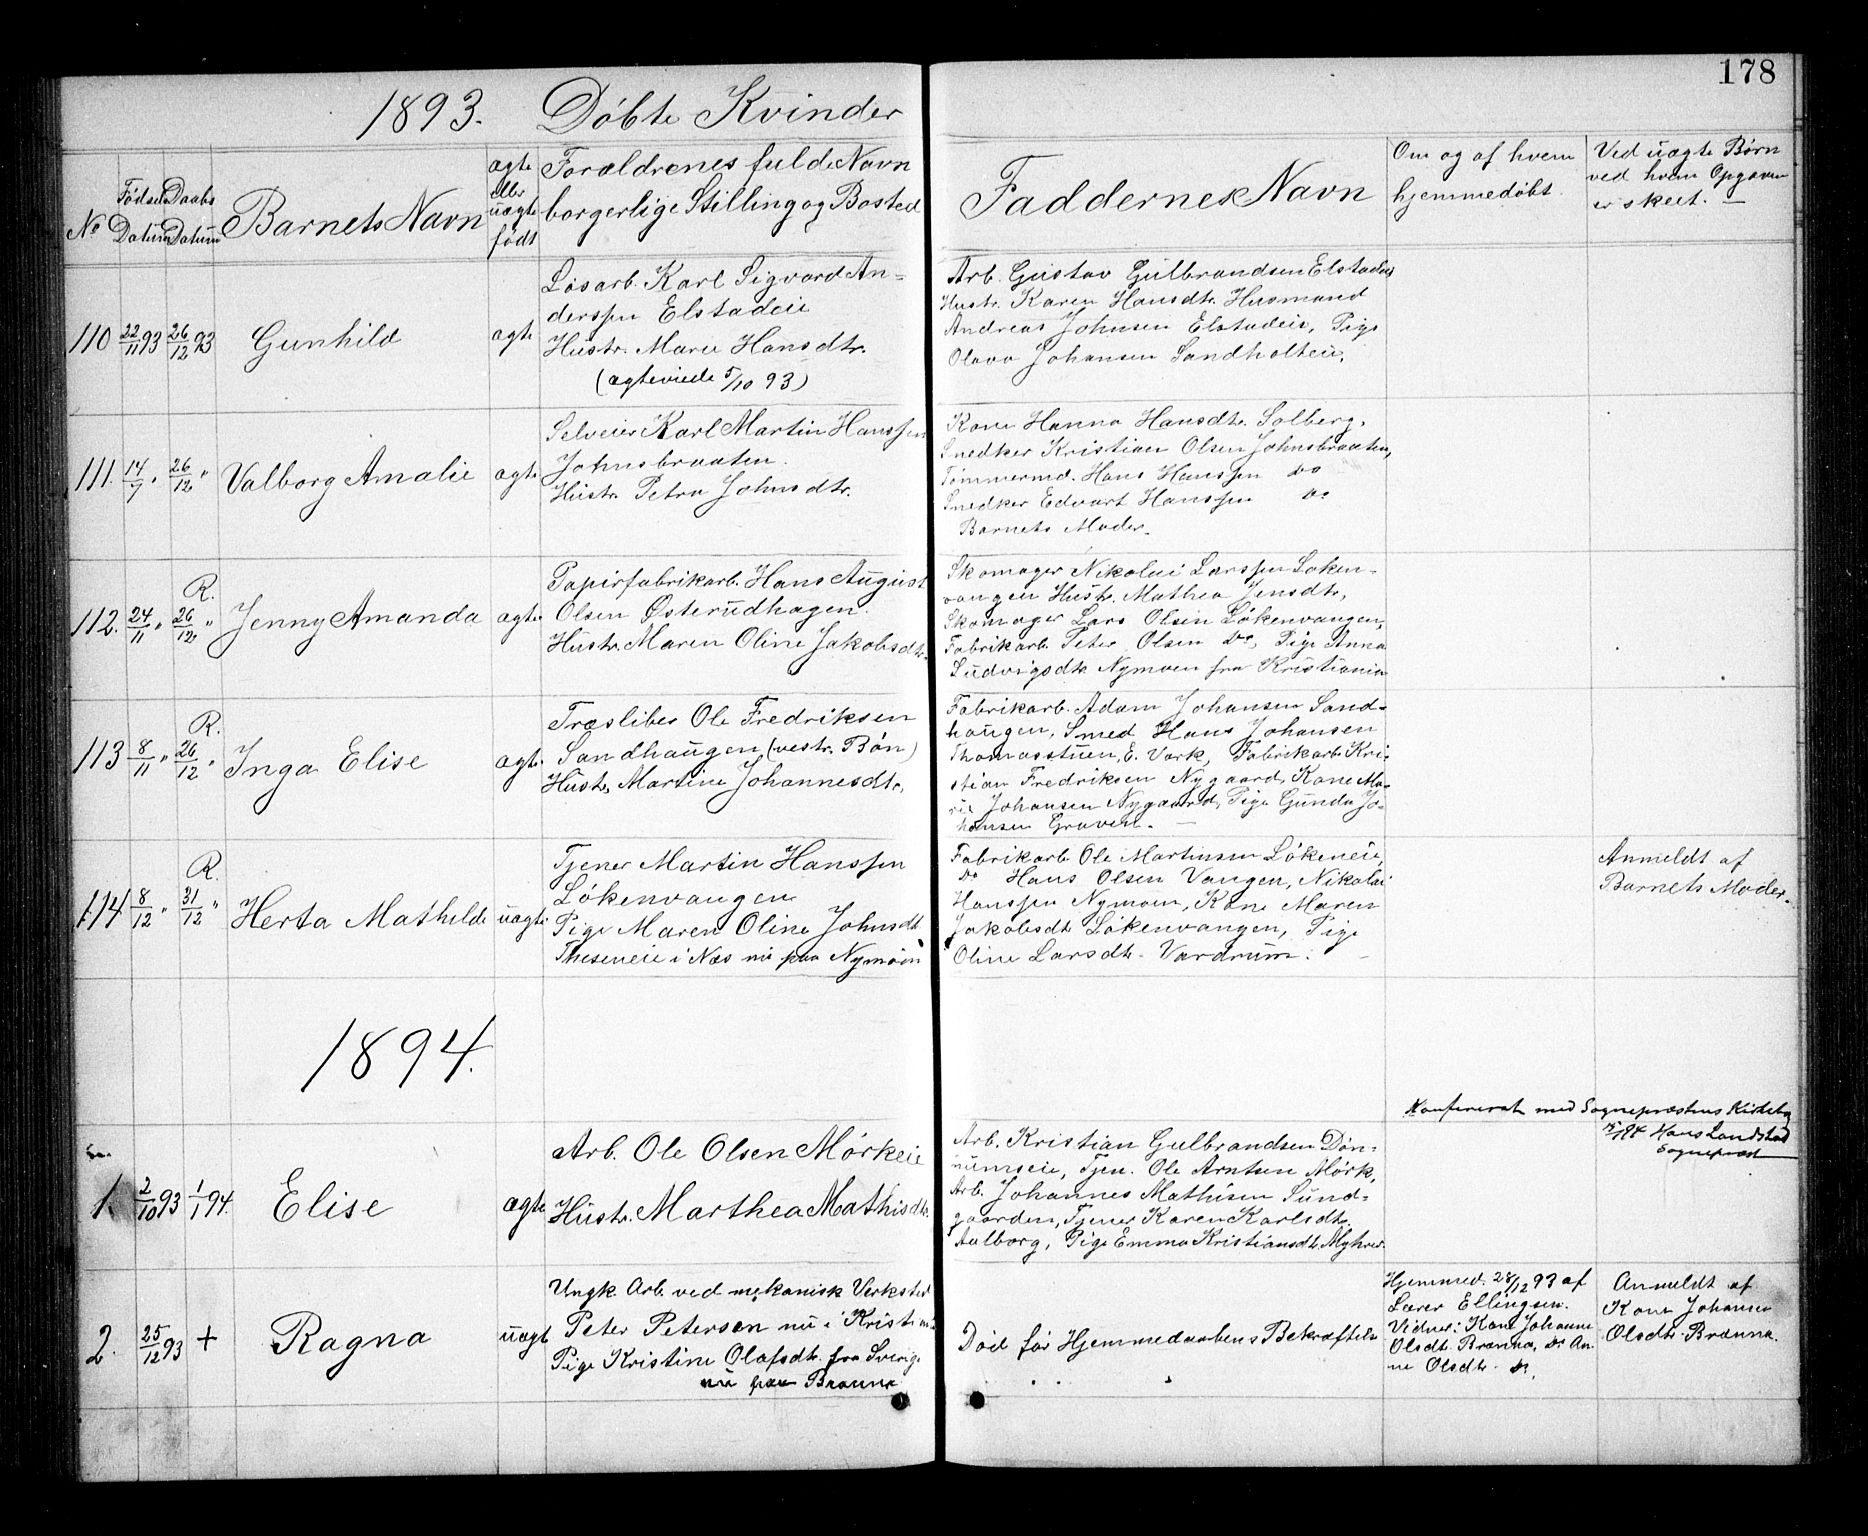 178
1893. Døbte Kvinder
No
Fødsels Datum
Daabs Datum
Barnets Navn
ægte eller uægte født
Forældrenes fulde Navn
borgerlige Stilling og Bosted
Faddernes Navn
Om og af hvem
hjemmedøbt
Ved uægte Børn
ved hvem Opgaven
er skeet.
110 22/11 93 26/12 93 Gunhild ægte
Løsarb. Karl Sigvard An-
derssen Elstadeie
Hustr. Marie Hansdtr.
(ægteviede 5/10 93)
Arb. Gustav Gulbrandsen Elstadeie
Hustr. Karen Hansdtr. Husmand
Andreas Johnsen Elstadeie, Pige
Olava Johansen Sandholteie.
111. 14/7 " 26/12 " Valborg Amalie ægte
Selveier Karl Martin Hanssen
Johnsbraaten.
Hustr. Petra Johnsdtr.
Kone Hanna Hansdtr. Solberg,
Snedker Kristian Olsen Johnsbraaten,
Tømmermd. Hans Hanssen do
Snedker Edvart Hanssen do
Barnets Moder.
112. 24/11 " R. 26/12 " Jenny Amanda ægte
Papirfabrikarb. Hans August
Olsen Østerudhagen.
Hustr. Maren Oline Jakobsdtr.
Skomager Nikolai Larssen Løken-
vangen Hustr. Mathea Jensdtr,
Skomager Lars Olsen Løkenvangen,
Fabrikarb. Peter Olsen do, Pige Anna
Ludvigsdtr. Nymoen fra Kristiania
113 8/11 " R. 26/12 " Inga Elise ægte
Træsliber Ole Fredriksen
Sandhaugen (vestr. Bøn)
Hustr. Martine Johannesdtr.
Fabrikarb. Adam Johansen Sand-
haugen, Smed Hans Johansen
Thomasstuen, E. Værk, Fabrikarb. Kri-
stian Fredriksen Nygaard, Kone Ma-
rie Johansen Nygaard, Pige Gunda Jo-
hansen Graven.
114 8/12 " R. 31/12 " Herta Mathilde uægte
Tjener Martin Hanssen
Løkenvangen
Pige Maren Oline Johnsdtr
Theseneie i Næs nu paa Nymoen
Fabrikarb. Ole Martinsen Løkeneie,
do Hans Olsen Vangen, Nikolai
Hanssen Nymoen, Kone Maren
Jakobsdtr Løkenvangen, Pige
Oline Larsdtr. Vardrum.
Anmeldt af
Barnets Moder.
1894.
Konfereret med Sognepræstens Kirkebog
Hans Landstad
Sognepræst
1. 2/10 93 1/1 94. Elise ægte
Arb. Ole Olsen Mørkeie
Hustr. Marthea Mathisdtr.
Arb. Kristian Gulbrandsen Døn-
numseie, Tjen. Ole Arntsen Mørk,
Arb. Johannes Mathisen Sund-
gaarden, Tjener Karen Karlsdtr.
Aalborg, Pige Emma Kristiansdtr. Myhrer.
2. 25/12 93 + Ragna uægte
Ungk. Arb. ved mekanisk Verksted
Peter Petersen nu i Kristiania
Pige Kristine Olafsdtr. fra Sverige
nu paa Brænna
Død før Hjemmedaabens Bekræftelse
Hjemmed. 28/12 93 af
Lærer Ellingsen.
Vidner: Kone Johanne
Olsdt. Brænna, do An-
ne Olsdtr. do.
Anmeldt af
Kone Johanne
Olsdtr. Brænna.